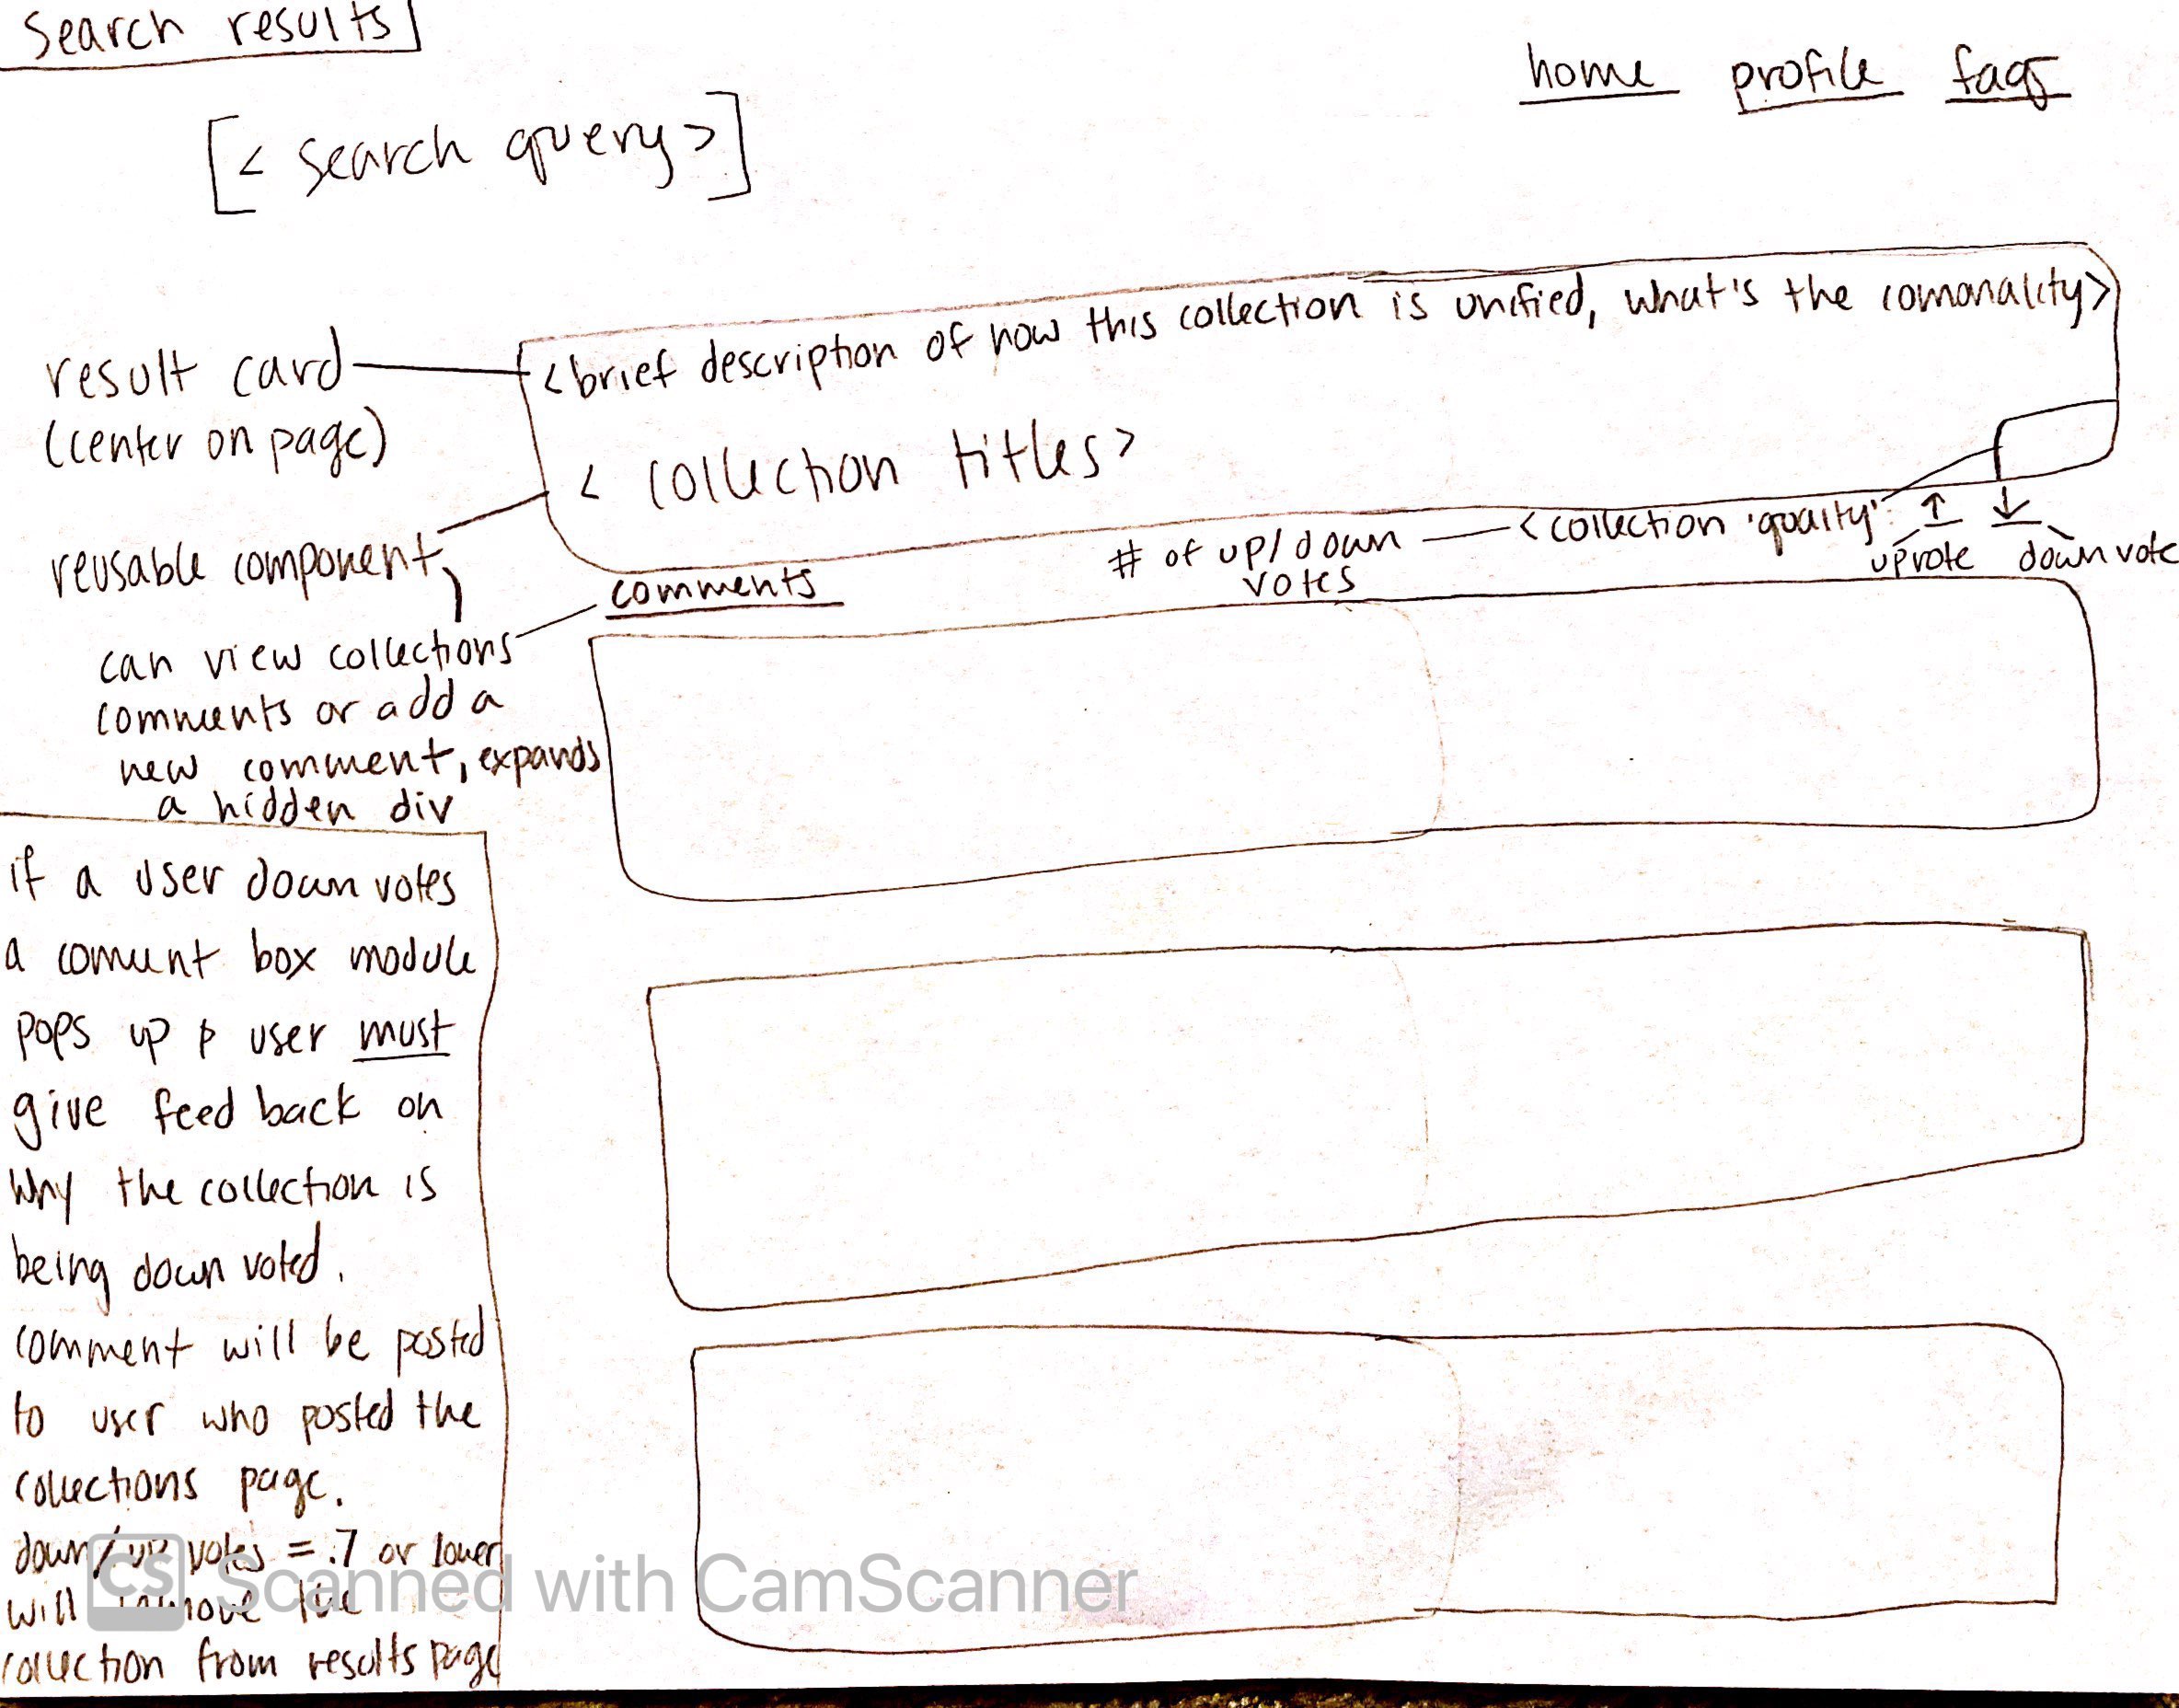 search results
home profile faqs
[< search query >]
<brief description of how this collection is unified, what's the comonality>
result card
(center on page)
< collection titles >
reusable component
# of up/down
votes
<collection 'quality':
↑ ↓
upvote downvote
comments
can view collections
comments or add a
new comment, expands
a hidden div
if a user down votes
a comment box module
pops up & user must
give feed back on
why the collection is
being down voted.
comment will be posted
to user who posted the
collections page.
down/up votes = .7 or lower
will remove the
collection from results page
CS Scanned with CamScanner